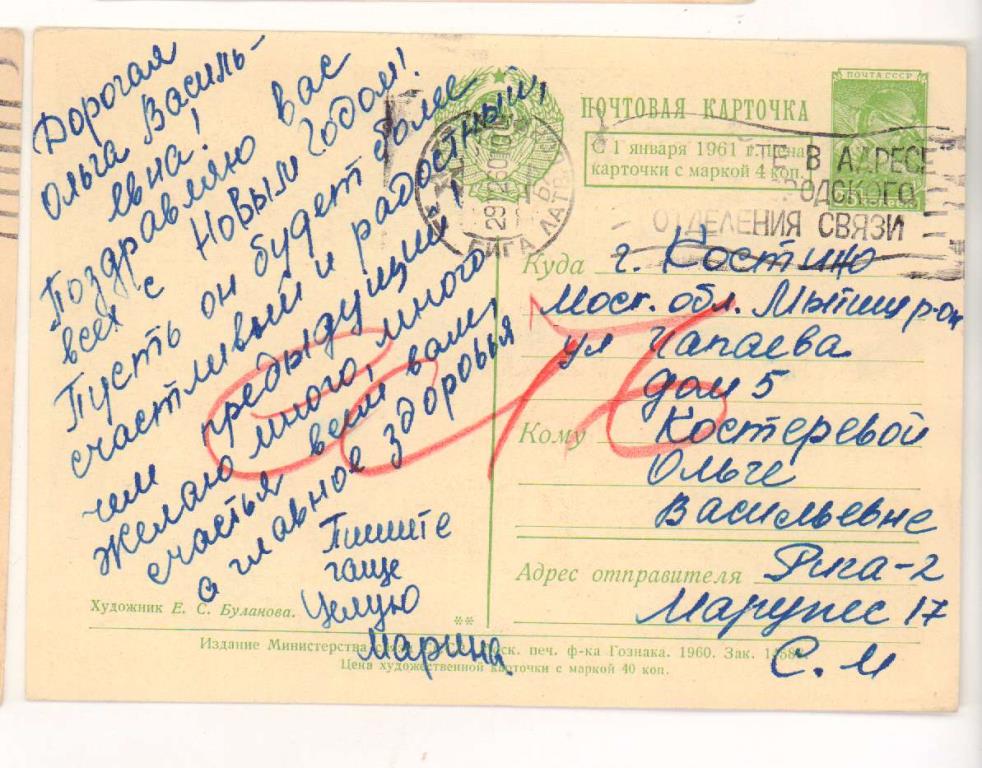 Дорогая
Ольга Василь-
евна!
Поздравляю Вас
всех с Новым Годом!
Пусть он будет более
счастливый и радостный,
чем предыдущий!
Желаю много, много
счастья всем вам,
а главное здоровья
Пишите
чаще
Целую
Марина.
Художник Е. С. Буланова.
ПОЧТА СССР
ПОЧТОВАЯ КАРТОЧКА
С 1 января 1961 г. цена
карточки с маркой 4 коп.
ТЕ В АДРЕСЕ
РОДСКОГО
ОТДЕЛЕНИЯ СВЯЗИ
РИГА ЛАТВ
29 12 60
Куда г. Костино
Моск. обл. Мытищ р-он
ул Чапаева
дом 5
Кому Костеревой
Ольге
Васильевне
Адрес отправителя Рига-2
Марупес 17
С. М
**
Издание Министерства связи печ. ф-ка Гознака. 1960. Зак.
Цена художественной карточки с маркой 40 коп.